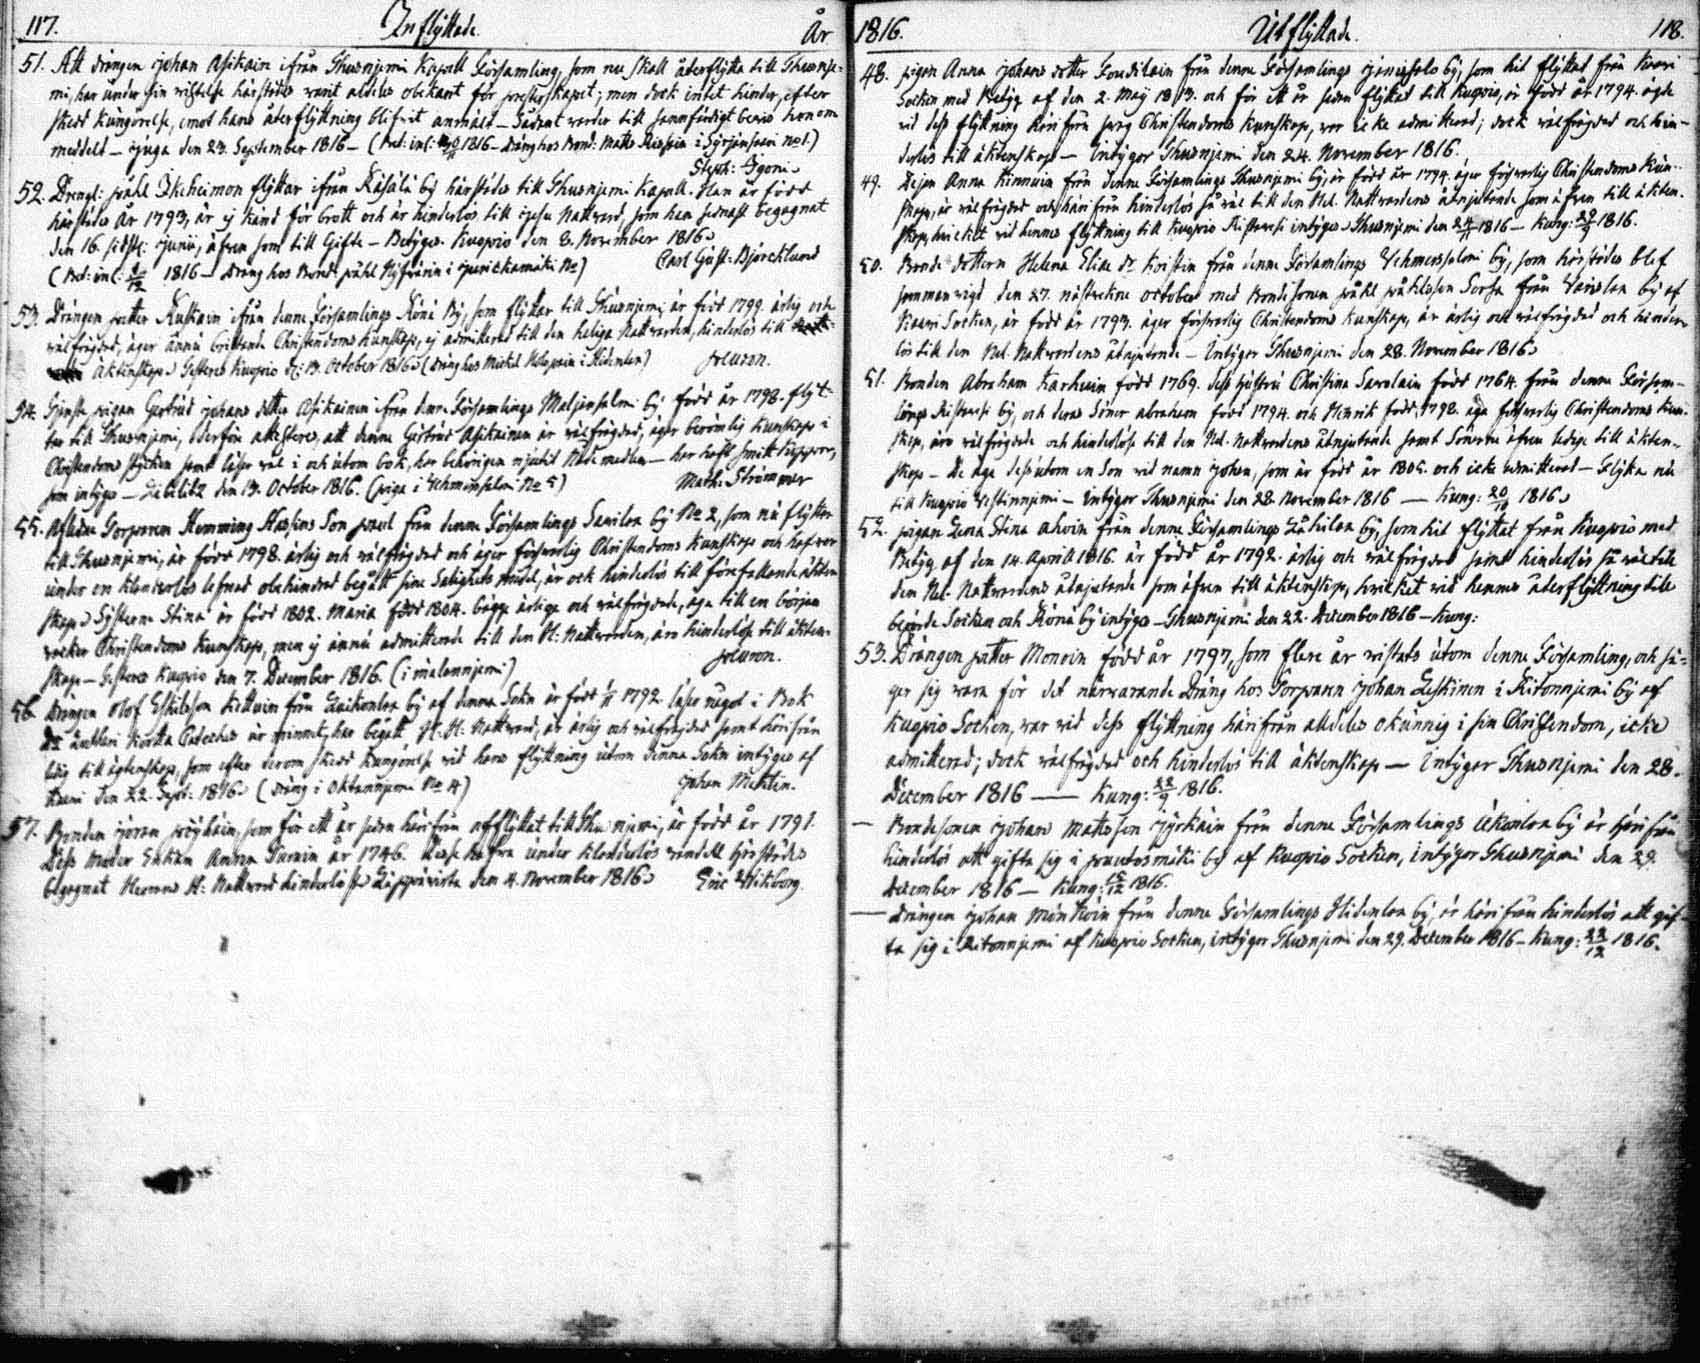 117. Inflyttade. År
51. Att drängen Johan Asikain ifrån Thusnjemi Kapell Församling, som nu skall återflytta till Thusnje-
mi, har under sin vistelse härstädes varit aldeles obekant för presterskapet; men dock intet hinder, efter
skedd kungörelse, emot hans återflyttning blifvit anmäld - Sådant varder till sannfärdigt bevis honom
meddelt - Juga den 23 September 1816 - (Bet: inl: 1816 - dräng hos Bond: Matts i No 1.)
Steph:
52. Drengen påhl Ikäheimon flyttar ifrån Käsälä by härstädes till Thusnjemi Kapell. Han är född
härstädes år 1793, är ej känd för brott och är hinderlös till Nattvard, som han sednast begagnat
den 16. sidstl: Junii, äfven som till Gifte - Betygas. Kuopio den 8. November 1816.
(Bet: inl: 1816 - dräng hos Bond: påhl i No) Carl Gust: Björcklund
53. Drängen petter Ruskain ifrån denne Församlings Köni By, som flyttar till Thusnjemi, är född 1799. ärlig och
välfrägdad, äger ännu bristande Christendoms kunskap, ej admitterad till den heliga Nattvarden, hinderlös till
Äktenskap. Testeras Kuopio d: 13. October 1816. (dräng hos Mickel i Hidenlax)
54. pigan Gertrud Johans dotter Asikainen ifrån denne Församlings by född år 1798. flyt-
tar till Thusnjemi, derföre attesteras, att denne Gertrud Asikainen är välfrägdad, äger berömlig kunskap i
Christendoms stycken samt läser väl i och utom bok, har behörigen njutit Nådemedlen - har haft smittkoppor,
som intygas - Libelitz den 13. October 1816. (piga i No 5) Math: Strömmer
55. Afledne Torparen Henning Son från denne Församlings Savilax by No 2, som nu flyttar
till Thusnjemi, är född 1798. ärlig och välfrägdad och äger försvarlig Christendoms kunskap och hafver
under en klanderlös lefnad obehindrat begått sine Salighets medel, är ock hinderlös till förefallande äkten-
skap. Systerna Stina är född 1802. Maria född 1804. bägge ärlige och välfrägdade, äga till en början
vacker Christendoms kunskap, men ej ännu admitterade till den H: Nattvarden, äro hinderlösa till äkten-
skap - Testeras Kuopio den 7. December 1816. (i Niemi)
56. Drängen Olof Eskilsson från by af denna Sokn är född 1792. läser något i Bok
Kortta Cateches är minnet, har begått H: H: Nattvard, är ärlig och välfrägdad samt härifrån
ledig till ägtenskap, som efter derom skedd kungörelse vid hans flyttning utom denna Sokn intygas af
Kaavi den 22. Sept: 1816. (dräng i No 4) Johan Mechlin.
57. Bonden Jöran, som för ett år sedan härifrån afflyttat till Thusnjemi, är född år 1791.
Dess moder Enkan Anna är 1746. Desse hafva under klanderlös vandell härstädes
begagnat Herrans H: Nattvard hinderlöst. den 4. November 1816. Eric Wikborg.
1816. Utflyttade. 118.
48. pigan Anna Johans dotter från denne Församlings by, som hit flyttat från Kaavi
Socken med Betyg af den 2. Maij 1813. och för ett år sedan flyttad till Kuopio, är född år 1794. ägde
vid dess flyttning härifrån svag Christendoms kunskap, var icke admitterad; dock välfrägdad och hin-
derlös till äktenskap - Intygar Thusnjemi den 24. November 1816.
49. Dejan Anna Kinnuin från denne Församlings Thusnjemi by, är född år 1794. äger försvarlig Christendoms kun-
skap, är välfrägdad och härifrån hinderlös så väl till den Hel. Nattvardens åtnjutande som äfven till äkten-
skap, hvilket vid hennes flyttning till Kuopio intygas. Thusnjemi den 24/11 1816 - Kung: 1816.
50. Bonde dottern Helena Elias dr från denne Församlings Vehmersalmi by, som härstädes blef
sammanvigd den 27. nästvekne october med Bondesonen påhl påhlsson Sorsa från by af
Kaavi Socken, är född år 1793. äger försvarlig Christendoms kunskap, är ärlig och välfrägdad och hinder-
lös till den Hel. Nattvardens åtnjutande - Intygar Thusnjemi den 28. November 1816.
51. Bonden Abraham Karhuin född 1769. dess hustru Christina Savolain född 1764. från denne Försam-
lings by, och deras Söner abraham född 1794. och Henrik född 1798. äga försvarlig Christendoms kun-
skap, äro välfrägdade och hinderlösa till den Hel. Nattvardens åtnjutande samt Sönerne äfven ledige till äkten-
skap - De äga dessutom en Son vid namn Johan, som är född år 1805. och icke admitterad - Flytta nu
till Kuopio - Intygar Thusnjemi den 28. November 1816 - Kung: 20/10 1816.
52. pigan Lena Stina ahoin från denne Församlings by, som hit flyttat från Kuopio med
Betyg af den 14. Aprill 1816. är född år 1792. ärlig och välfrägdad samt hinderlös så väl till
den Hel. Nattvardens åtnjutande som äfven till äktenskap, hvilket vid hennes återflyttning till
berörde Socken och Köni by intygas - Thusnjemi den 22. December 1816 - Kung:
53. Drängen petter Monoin född år 1797, som flere år vistats utom denne Församling, och sä-
ger sig vara för det närvarande Dräng hos Torparen Johan Leskinen i Ritonnjemi by af
Kuopio Socken, var vid dess flyttning härifrån alldeles okunnig i sin Christendom, icke
admitterad; dock välfrägdad och hinderlös till äktenskap - Intygar Thusnjemi den 28.
December 1816 - Kung: 22/9 1816.
- Bondesonen Johan Matsson från denne Församlings by är härifrån
hinderlös att gifta sig i by af Kuopio Socken, Intygar Thusnjemi den 29.
December 1816 - Kung: 15/12 1816.
- Drängen Johan Mönköin från denne Församlings Hidenlax by, är härifrån hinderlös att gif-
ta sig i Ritonnjemi af Kuopio Socken, intygar Thusnjemi den 29. December 1816 - Kung: 22/12 1816.